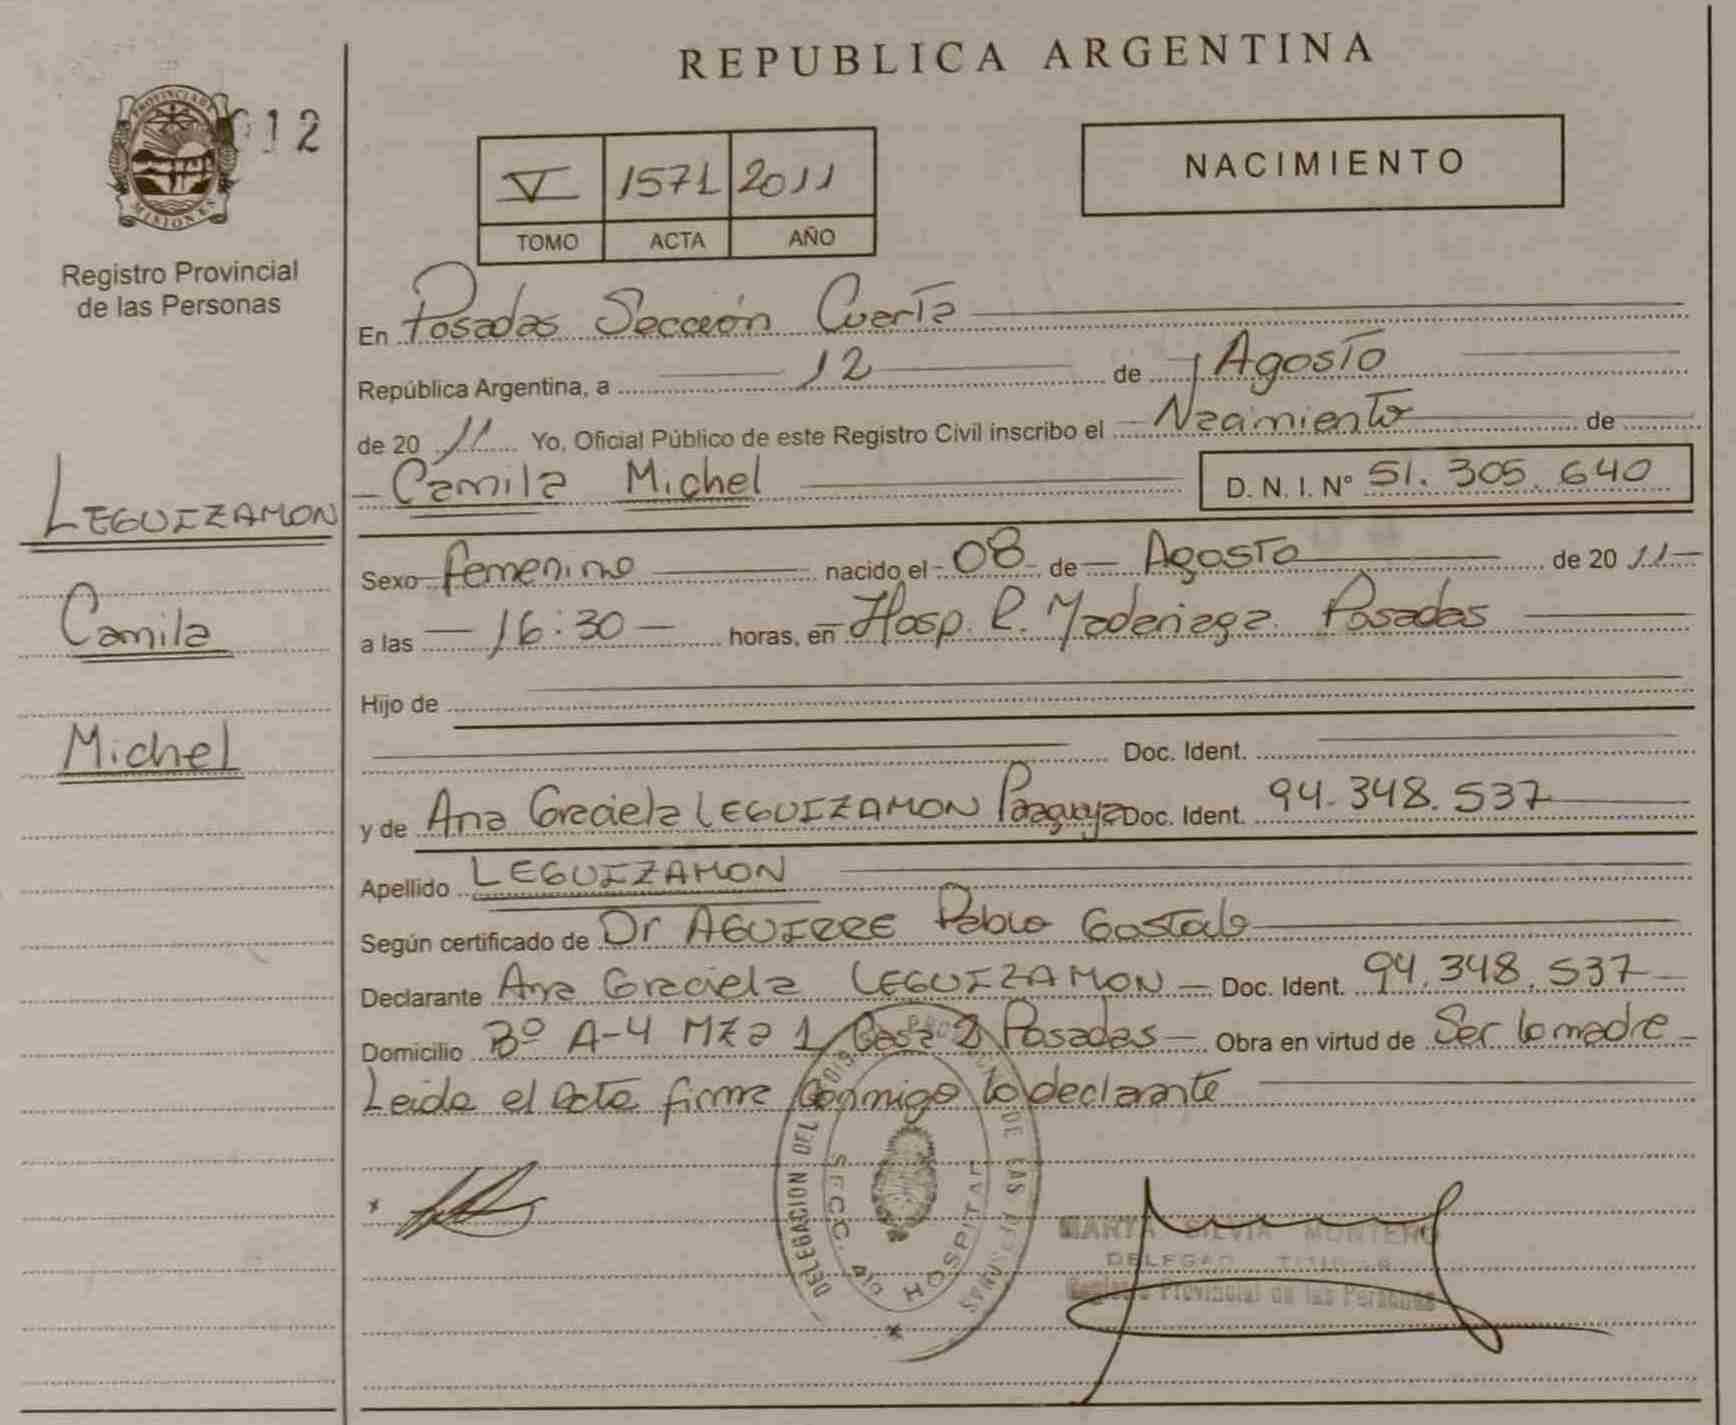 REPUBLICA ARGENTINA
PROVINCIA DE MISIONES
012
Registro Provincial
de las Personas
V 1571 2011
TOMO ACTA AÑO
NACIMIENTO
LEGUIZAMON
Camila
Michel
En Posadas Sección Cuarta
República Argentina, a 12 de Agosto
de 20 11 Yo, Oficial Público de este Registro Civil inscribo el Nacimiento de
Camila Michel D. N. I. N° 51.305.640
Sexo femenino nacido el 08 de Agosto de 20 11
a las 16:30 horas, en Hosp. R. Madariaga. Posadas
Hijo de
Doc. Ident.
y de Ana Graciela LEGUIZAMON Paraguaya Doc. Ident. 94.348.537
Apellido LEGUIZAMON
Según certificado de Dr AGUIRRE Pablo
Declarante Ana Graciela LEGUIZAMON Doc. Ident. 94.348.537
Domicilio Bº A-4 Mza 1 Casa 2 Posadas Obra en virtud de Ser la madre
Leida el acta firma conmigo la declarante
DELEGACION DEL DE LAS PERSONAS
SECC. 4ta HOSPITAL
MARTA SILVIA MONTERO
DELEGAD TITULAR
Registro Provincial de las Personas